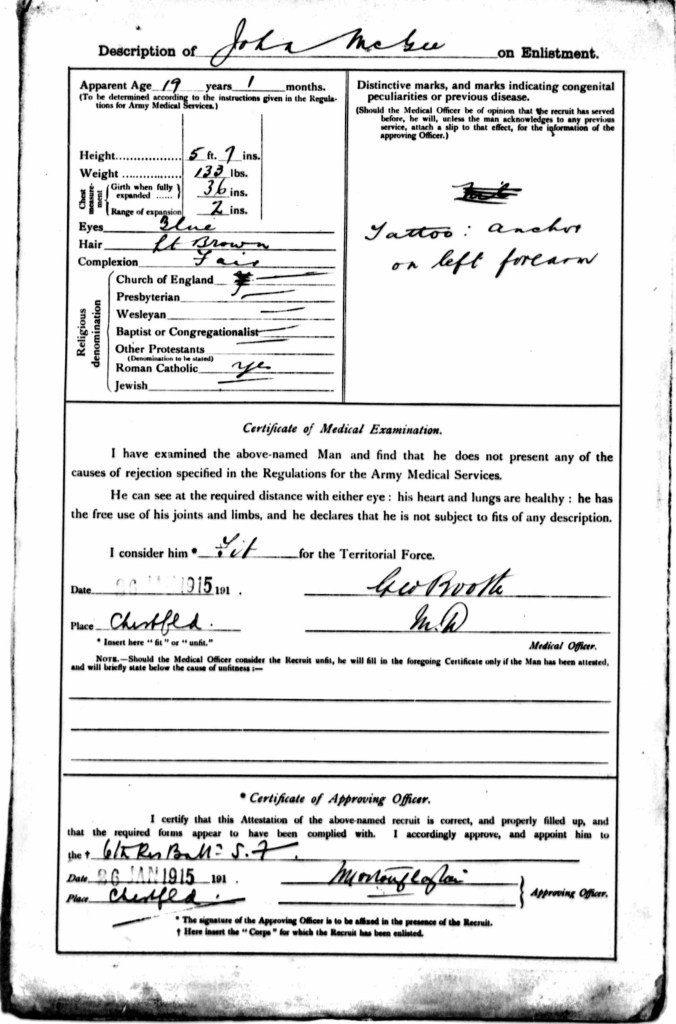 Description of John McGee on Enlistment.
Apparent Age 19 years 1 months.
(To be determined according to the instructions given in the Regula-
tions for Army Medical Services.)
Height................... 5 ft. 7 ins.
Weight ................. 133 lbs.
Chest measure-ment { Girth when fully expanded ...... } 36 ins.
Range of expansion 2 ins.
Eyes Blue
Hair Lt Brown
Complexion Fair
Religious denomination
Church of England
Presbyterian
Wesleyan
Baptist or Congregationalist
Other Protestants
(Denomination to be stated)
Roman Catholic Yes
Jewish
Distinctive marks, and marks indicating congenital
peculiarities or previous disease.
(Should the Medical Officer be of opinion that the recruit has served
before, he will, unless the man acknowledges to any previous
service, attach a slip to that effect, for the information of the
approving Officer.)
Tattoo: anchor
on left forearm
Certificate of Medical Examination.
I have examined the above-named Man and find that he does not present any of the
causes of rejection specified in the Regulations for the Army Medical Services.
He can see at the required distance with either eye : his heart and lungs are healthy : he has
the free use of his joints and limbs, and he declares that he is not subject to fits of any description.
I consider him * Fit for the Territorial Force.
Date 26 JAN 1915 191 .
Geo Booth
Place Chestfld.
M.D
* Insert here "fit" or "unfit."
Medical Officer.
NOTE.—Should the Medical Officer consider the Recruit unfit, he will fill in the foregoing Certificate only if the Man has been attested,
and will briefly state below the cause of unfitness :—
* Certificate of Approving Officer.
I certify that this Attestation of the above-named recruit is correct, and properly filled up, and
that the required forms appear to have been complied with. I accordingly approve, and appoint him to
the † 6th Res Battn S.F.
Date 26 JAN 1915 191 .
Place Chestfld
Approving Officer.
* The signature of the Approving Officer is to be affixed in the presence of the Recruit.
† Here insert the "Corps" for which the Recruit has been enlisted.